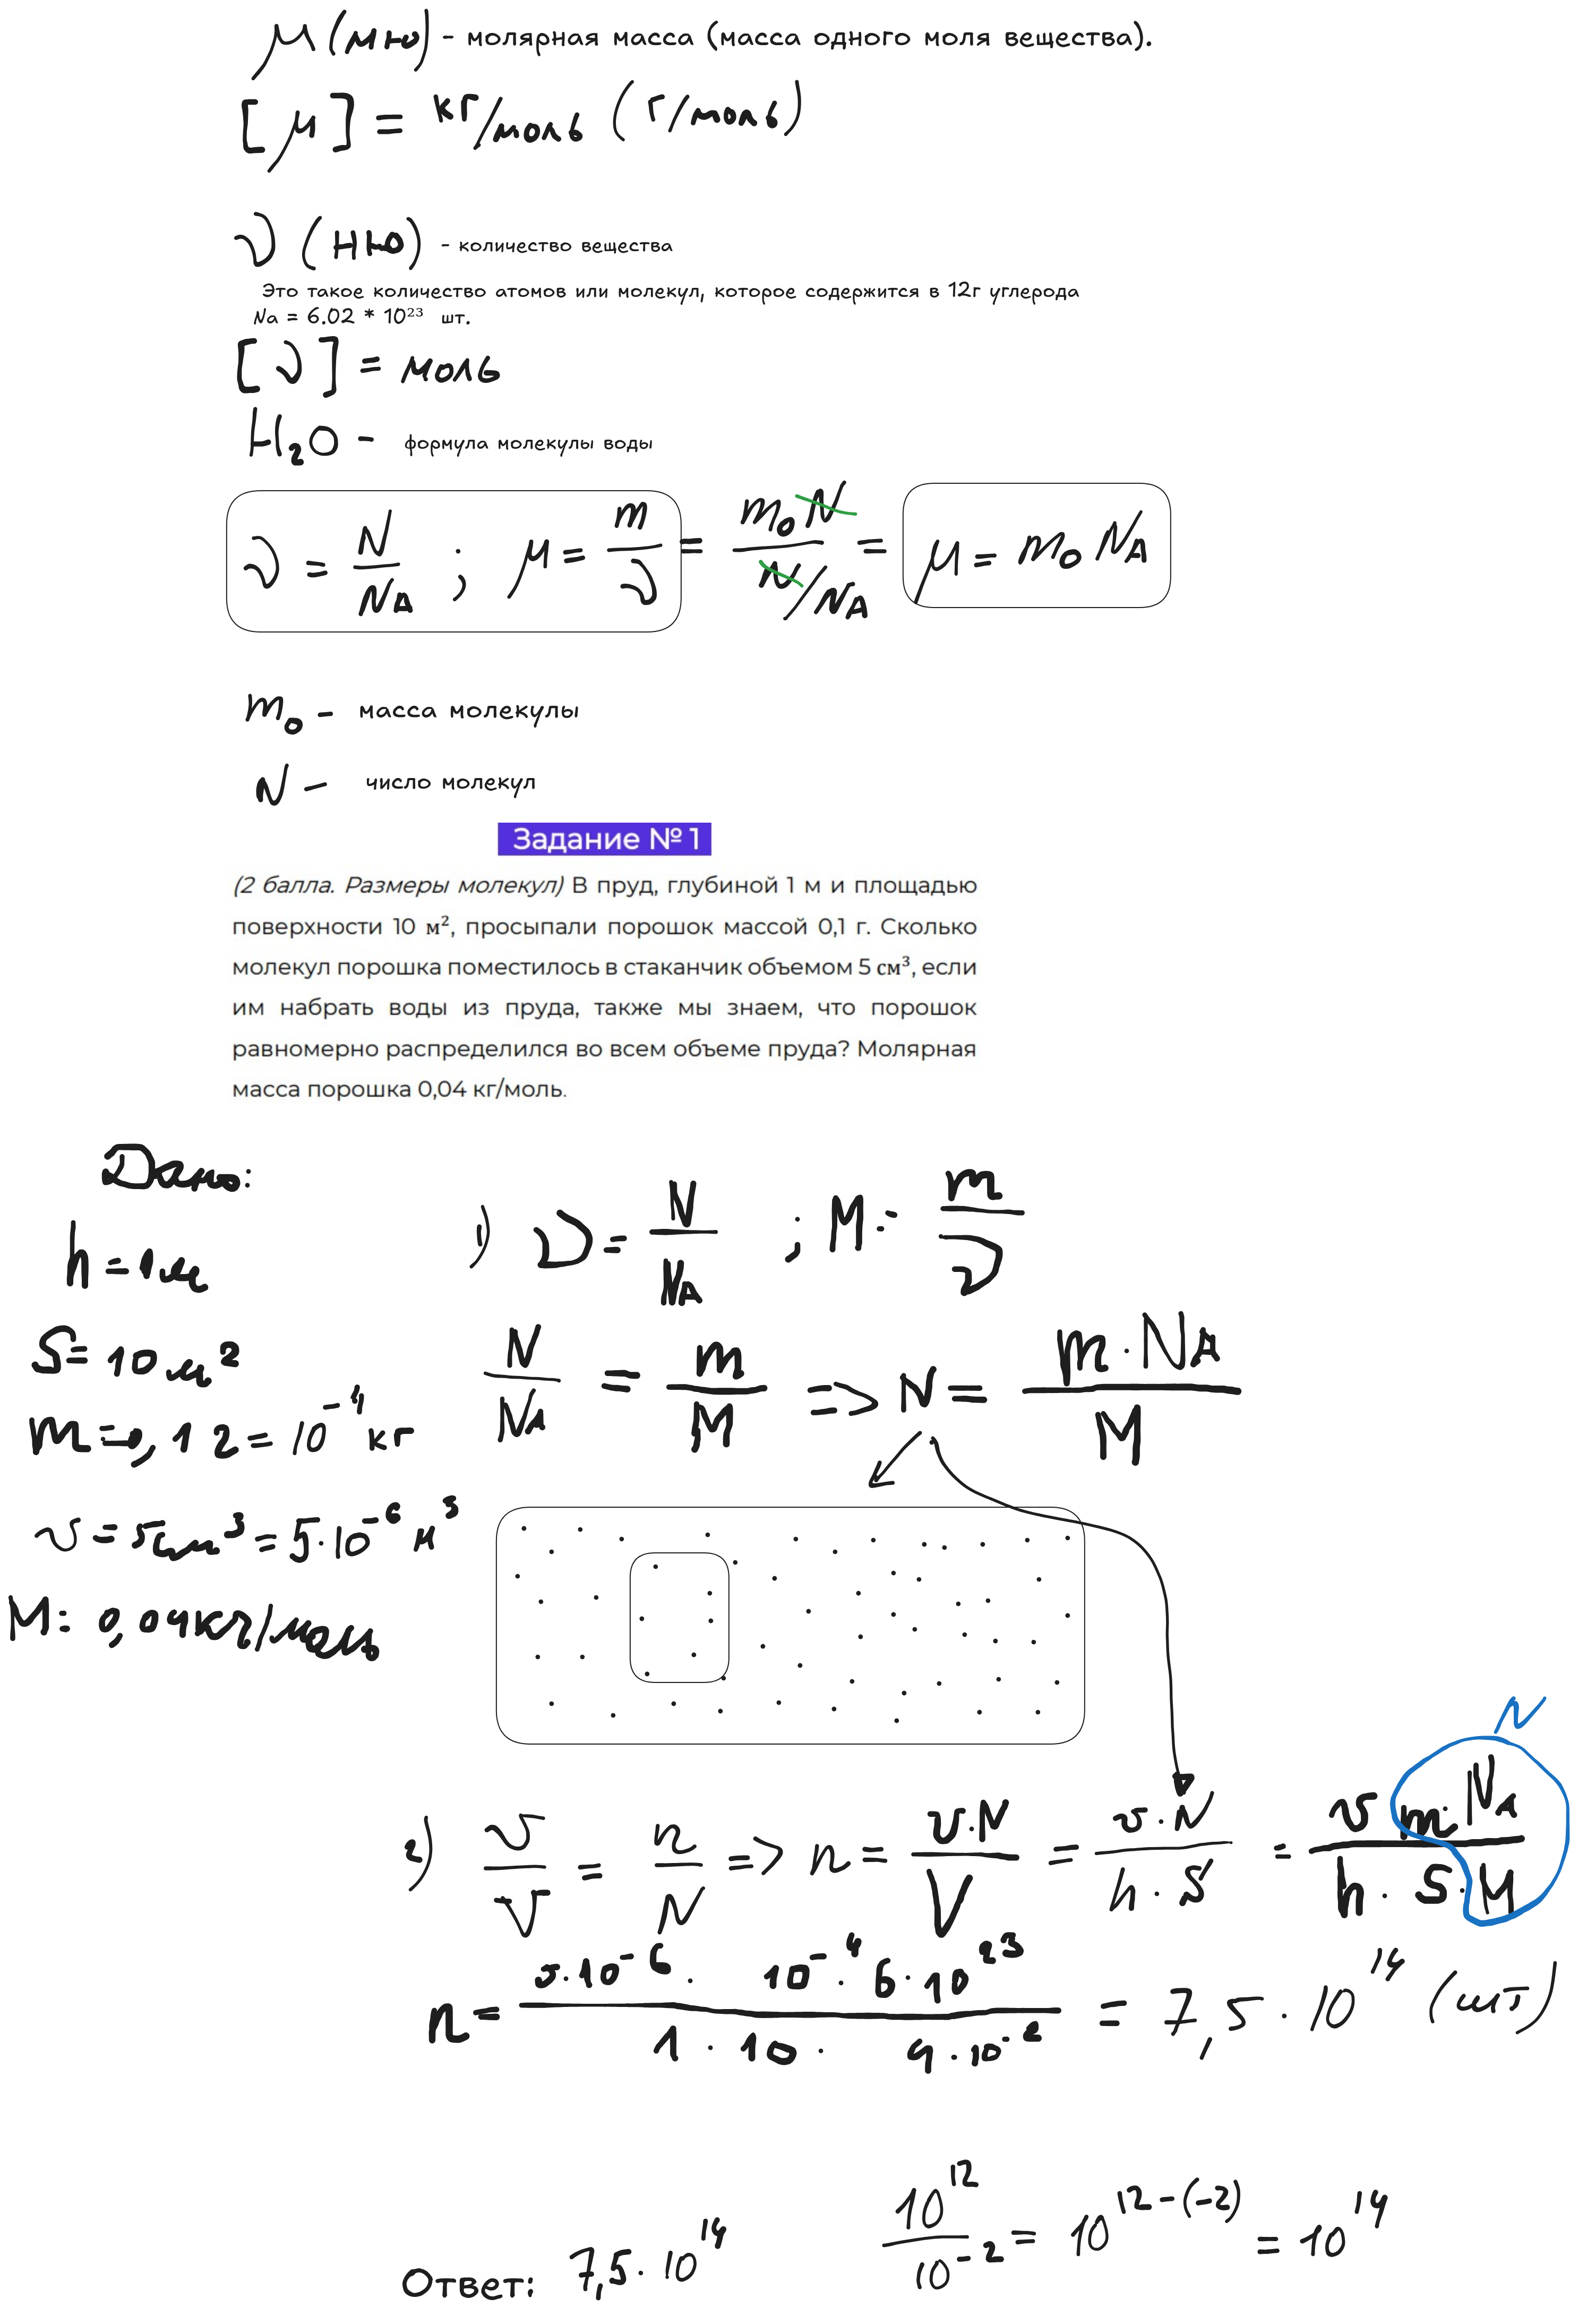 μ (мю) - молярная масса (масса одного моля вещества).
[μ] = кг/моль (г/моль)
ν (ню) - количество вещества
Это такое количество атомов или молекул, которое содержится в 12г углерода
Na = 6.02 * 10²³ шт.
[ν] = моль
H₂O - формула молекулы воды
ν = N/NA ; μ = m/ν = m₀N/(N/NA) = μ = m₀ NA
m₀ - масса молекулы
N - число молекул
Задание № 1
(2 балла. Размеры молекул) В пруд, глубиной 1 м и площадью
поверхности 10 м², просыпали порошок массой 0,1 г. Сколько
молекул порошка поместилось в стаканчик объемом 5 см³, если
им набрать воды из пруда, также мы знаем, что порошок
равномерно распределился во всем объеме пруда? Молярная
масса порошка 0,04 кг/моль.
Дано:
h = 1м
S = 10 м²
m = 0,1 г = 10⁻⁴ кг
v = 5см³ = 5·10⁻⁶ м³
M = 0,04кг/моль
1) ν = N/NA ; M = m/ν
N/NA = m/M => N = m·NA/M
N
2) v/V = n/N => n = v·N/V = v·N/h·S = v m·NA/h·S·M
n = 5·10⁻⁶ · 10⁻⁴ · 6·10²³/1 · 10 · 4·10⁻² = 7,5 · 10¹⁴ (шт)
10¹²/10⁻² = 10¹²⁻⁽⁻²⁾ = 10¹⁴
Ответ: 7,5 · 10¹⁴